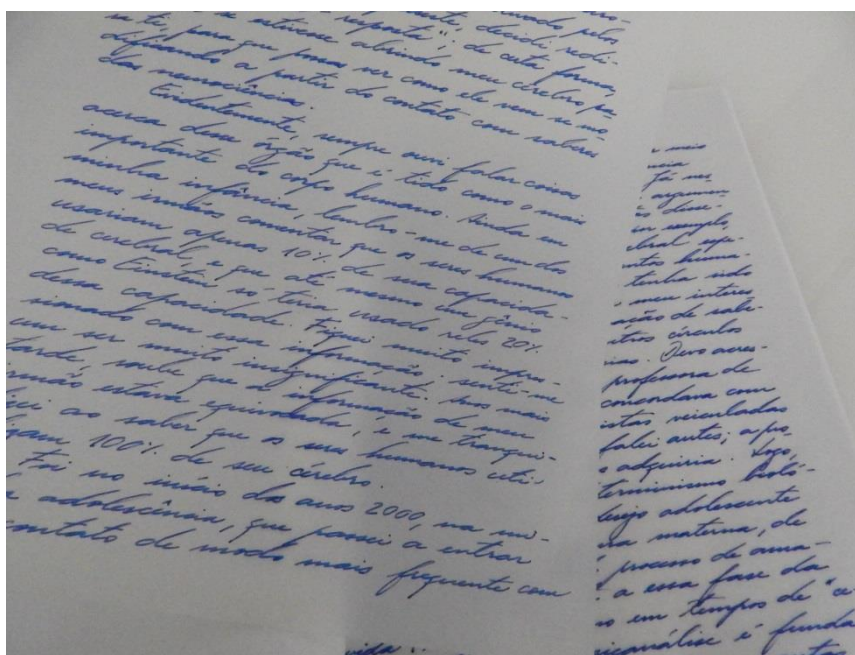 resposta"; de certa forma,
se estivesse abrindo meu cérebro pa-
ra ti, para que possas ver como ele vem se mo-
dificando a partir do contato com saberes
das neurociências.
Evidentemente, sempre ouvi falar coisas
acerca desse órgão que é tido como o mais
importante do corpo humano. Ainda em
minha infância, lembro-me de um dos
meus irmãos comentar que os seres humanos
usariam apenas 10% de sua capacida-
de cerebral, e que até mesmo um gênio
como Einstein só teria usado reles 20%
dessa capacidade. Fiquei muito impres-
sionado com essa informação; senti-me
um ser muito insignificante. Anos mais
tarde, soube que a informação de meu
irmão estava equivocada, e me tranqui-
ao saber que os seres humanos utili-
zam 100% de seu cérebro.
Foi no início dos anos 2000, na mi-
adolescência, que passei a entrar
contato de modo mais frequente com
vida
mais
Já
argumen
em exemplo,
huma-
tenha sido
meu interes
ação de sabe-
círculos
Devo acres-
professora de
concordava com
veiculadas
falei antes; a pro-
adquiria. Logo,
terminismo bioló-
adolescente
materna, de
processo de ama-
a essa fase da
em tempos de "a
icanálise é funda